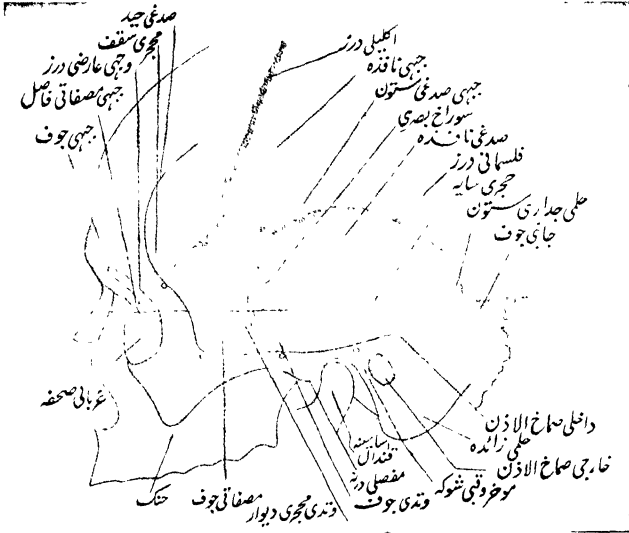 صدغی حید
محجری سقف
وجہی عارضی درز
جبہی مصفاتی فاصل
جبہی جوف
اکلیلی درز
جبہی نافذہ
جبہی صدغی ستون
سوراخ بصری
صدغی نافذہ
فلسمانی درز
حجری سایہ
حلمی جداری ستون
جانبی جوف
غربالی صحفہ
حنک
مصفاتی جوف
وتدی محجری دیوار
وتدی جوف
مفصلی درنہ
قندال
موخر وقبی شوکہ
خارجی صماخ الاذن
حلمی زائدہ
داخلی صماخ الاذن